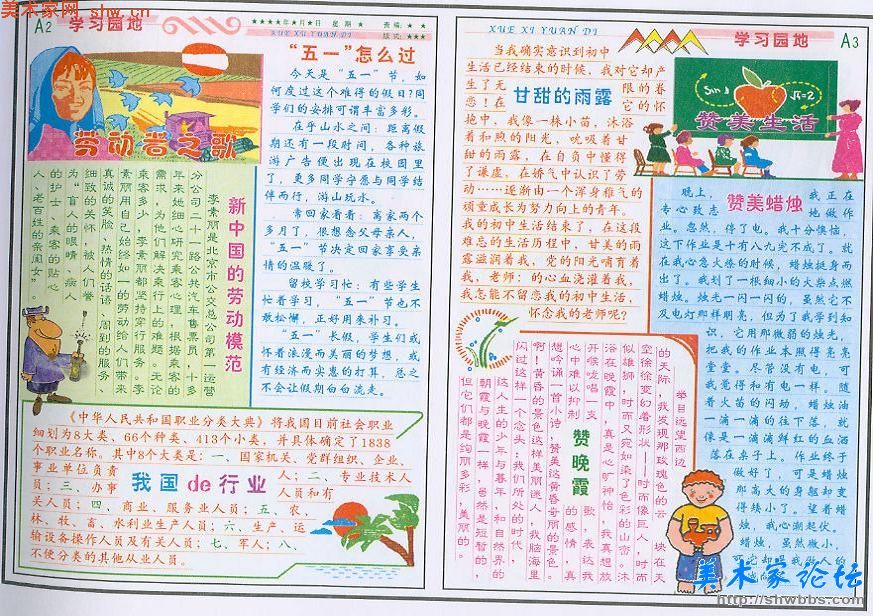 美术家网 shw.cn
A2
学习园地
★★★★年★月★日 星期★
责编:★★
版式:★★★
XUE XI YUAN DI
劳动者之歌
“五一”怎么过
今天是“五一”节,如
何度过这个难得的假日?同
学们的安排可谓丰富多彩。
在乎山水之间:距离假
期还有一段时间,各种旅
游广告便出现在校园里
了,更多同学宁愿与同学结
伴而行,游山玩水。
常回家看看:离家两个
多月了,很想念父母亲人,
“五一”节决定回家享受亲
情的温暖了。
留校学习忙:有些学生
忙着学习,“五一”节也不
敢松懈,正好用来补习。
“五一”长假,学生们或
怀着浪漫而美丽的梦想,或
有经济而实惠的打算,总之
不会让假期白白流走。
新中国的劳动模范
李素丽是北京市公交总公司第一运营
分公司二十一路公共汽车售票员,十多
年来她细心研究乘客心理,根据乘客的
需求,为他们解决乘行上的难题。无论
乘客多少,李素丽都坚持穿行服务。李
素丽用自己始终如一的劳动给人们带来
真诚的笑脸、热情的话语、周到的服务、
细致的关怀,被人们誉
为“盲人的眼睛、病人
的护士、乘客的贴心
人、老百姓的亲闺女”。
《中华人民共和国职业分类大典》将我国目前社会职业
细划为8大类、66个种类、413个小类,并具体确定了1838
个职业名称。其中8个大类是:一、国家机关、党群组织、企业、
事业单位负责人;二、专业技术人
员;三、办事人员和有
我国de行业
关人员;四、商业、服务业人员;五、农、
林、牧、畜、水利业生产人员;六、生产、运
输设备操作人员及有关人员;七、军人;八、
不便分类的其他从业人员。
XUE XI YUAN DI
学习园地
A3
甘甜的雨露
当我确实意识到初中
生活已经结束的时候,我对它却产
生了无限的眷
恋!在它的怀
抱中,我像一株小苗,沐浴
着和煦的阳光,吮吸着甘
甜的雨露,在自负中懂得
了谦虚,在娇气中认识了劳
动……逐渐由一个浑身稚气的
顽童成长为努力向上的青年。
我的初中生活结束了,在这段
难忘的生活历程中,甘美的雨
露滋润着我,党的阳光哺育着
我,老师:的心血浇灌着我,
我怎能不留恋我的初中生活,
怀念我的老师呢?
Sin
√=2
赞美生活
赞美蜡烛
晚上,我正在
专心致志地做作
业。忽然,停了电。我十分懊恼,
这下作业是十有八九完不成了。就
在我心急火燎的时候,蜡烛挺身而
出了。我划了一根细小的火柴点燃
蜡烛。烛光一闪一闪的,虽然它不
及电灯那样明亮,但为了我学到知
识,它用那微弱的烛光,
把我的作业本照得亮亮
堂堂。尽管没有电,可
我觉得和有电一样。随
着火苗的闪动,蜡烛油
一滴一滴的往下落,就
像是一滴滴鲜红的血洒
落在桌子上。作业终于
做好了,可是蜡烛
那高大的身躯却变
得矮小了。望着蜡
烛,我心潮起伏。
蜡烛,虽然微小,
赞晚霞
举目远望西边
的天际,我发现那玫瑰色的云块在天
空徐徐变幻着形状——时而像巨人,时而
似雄狮,时而又宛如染了色彩的山峦。沐
浴在晚霞中,真是心旷神怡,我真想放
开喉咙唱一支歌,表达我
心中难以抑制的感情,真
想吟诵一首小诗,赞美这黄昏奇丽的景色。
啊!黄昏的景色这样美丽迷人,我脑海里
闪过这样一个念头:我们所处的时代,
这人生的少年与暮年,和自然界的
朝霞与晚霞一样,虽然是短暂的,
但它们都是绚丽多彩,美丽的。
美术家论坛
http://shwbbs.com